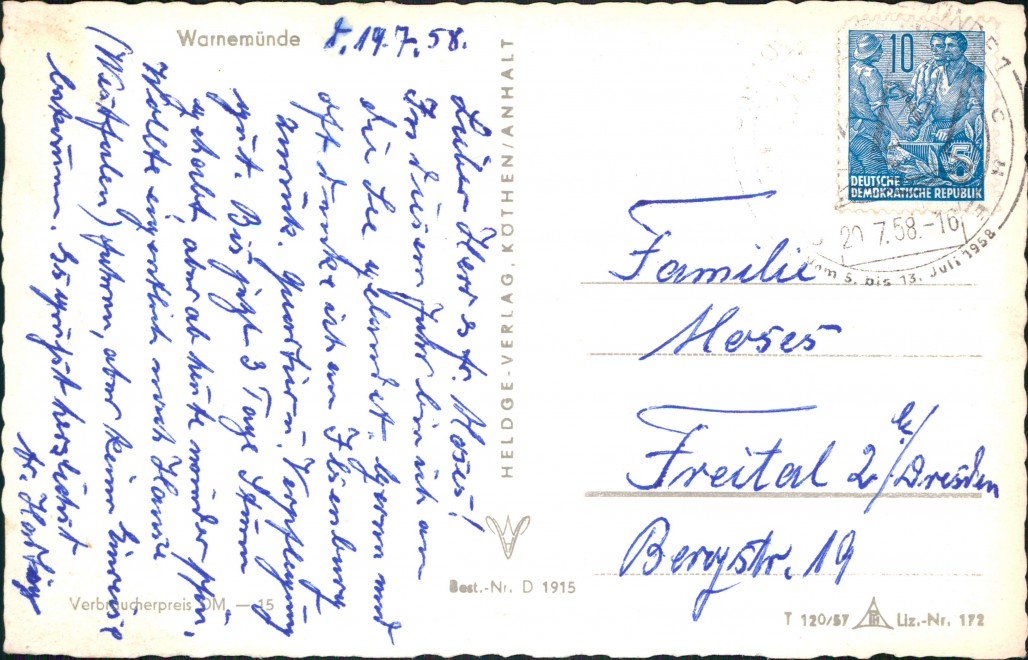 Warnemünde d. 19.7.58.
Lieber Herr & Fr. Moses!
In diesem Jahr bin ich an
die See gelandet. Gern und
oft denke ich an Ilsenburg
zurück. Quartier u. Verpflegung
gut. Bis jetzt 3 Tage Sturm
gehabt, aber ab heute wunderschön.
Wollte eigentlich nach Hause
(Westfalen) fahren, aber keine Einreise
bekommen. Es grüßt herzlichst
Fr. Hartig
Verbraucherpreis DM —15
HELDGE-VERLAG, KÖTHEN/ANHALT
Best.-Nr. D 1915
10
5
DEUTSCHE
DEMOKRATISCHE REPUBLIK
20.7.58.-16
vom 5. bis 13. Juli 1958
Familie
Moses
Freital 2 b/Dresden
Bergstr. 19
T 120/57 Liz.-Nr. 172